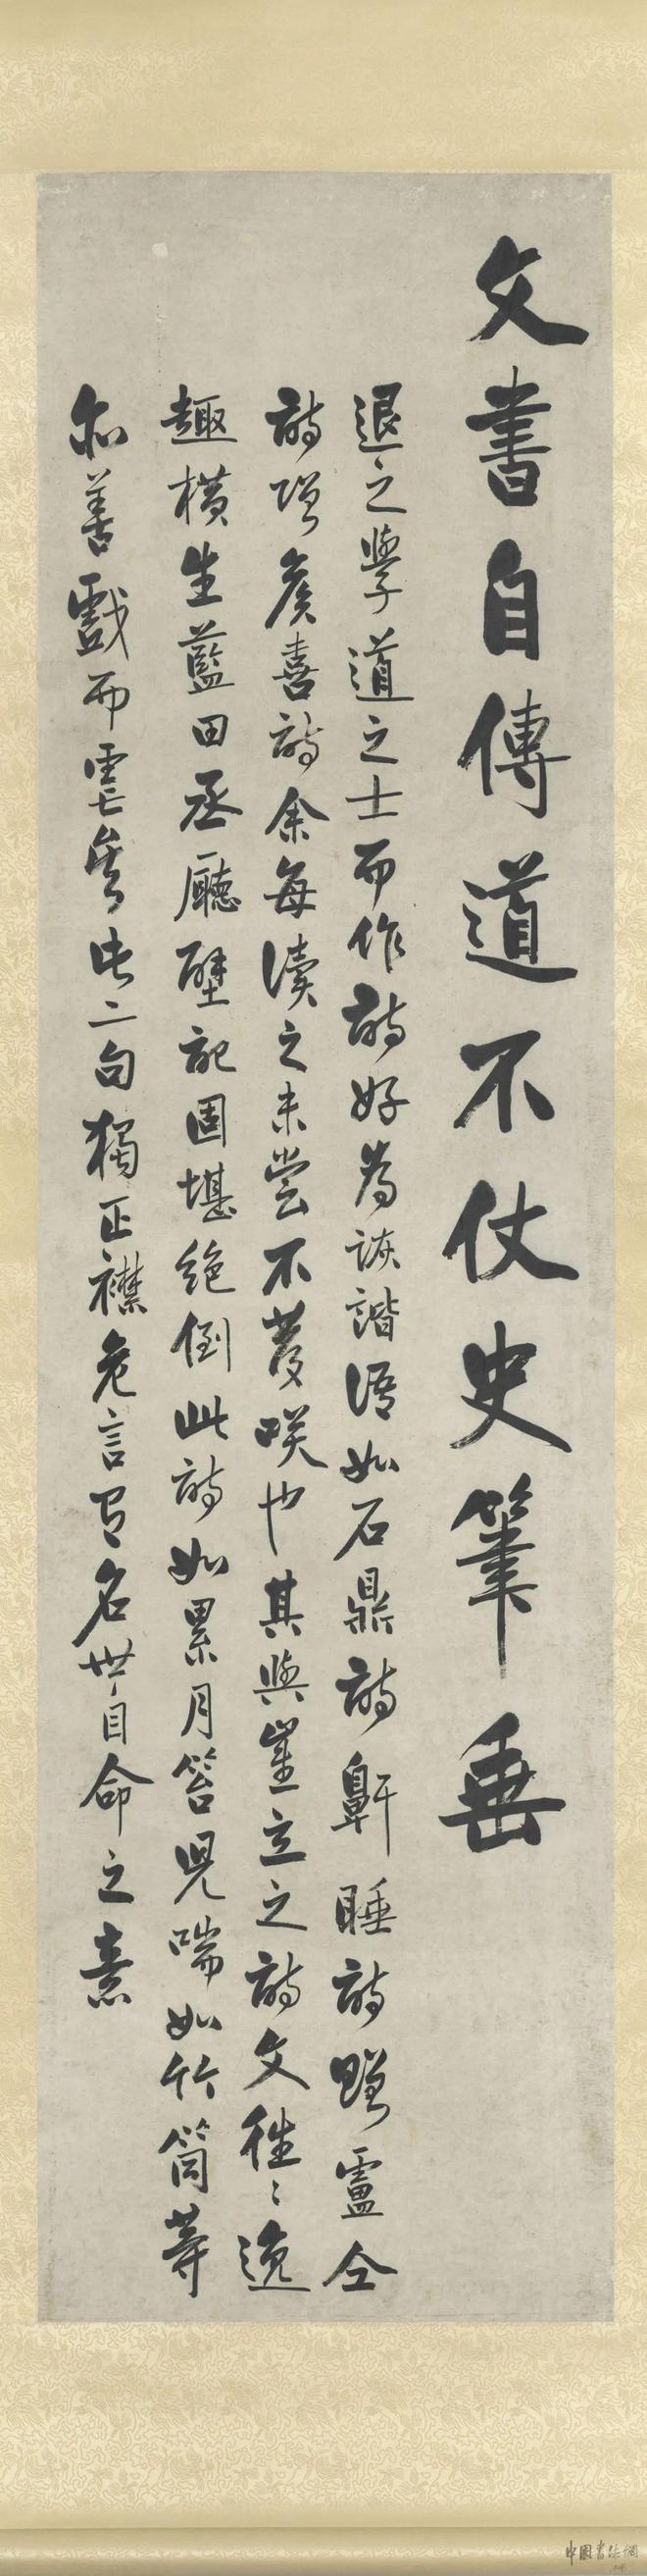 文書自傳道不仗史筆垂
退之學道之士而作詩好為詼諧語如石鼎詩鼾睡詩贈盧仝
詩贈侯喜詩余每讀之未嘗不發咲也其與崔立之詩文往〻逸
趣橫生藍田丞廳壁記固堪絕倒此詩如累月笞兒喘如竹筒等
亦善戲而虐矣此二句獨正襟危言有名世自命之意
中國書法網